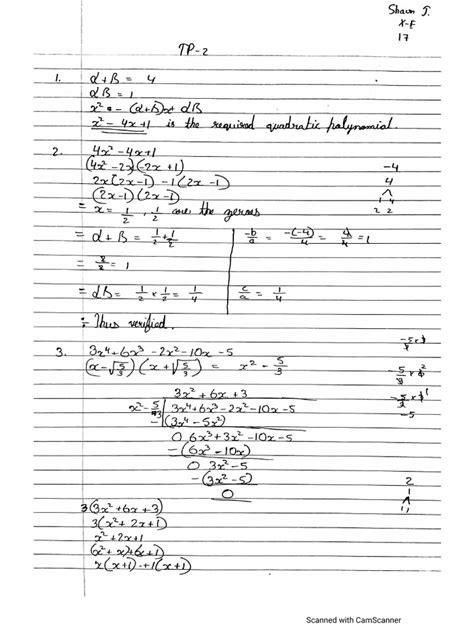 Shawn J.
X-F
17
TP-2
1. α+β = 4
αβ = 1
x² - (α+β)x + αβ
x² - 4x+1 is the required quadratic polynomial.
2. 4x² -4x+1
(4x² -2x)(-2x +1)
2x(2x-1) -1(2x -1)
(2x-1)(2x-1)
= x = 1/2, 1/2 are the zeroes
= α+β = 1/2+1/2
-b/a = -(-4)/4 = 4/4 = 1
= 2/2 = 1
= αβ = 1/2 × 1/2 = 1/4
c/a = 1/4
∴ Thus verified.
-4
4
2 2
3. 3x⁴+6x³ -2x² -10x -5
(x-√5/3)(x+√5/3) = x² - 5/3
3x² +6x +3
x² - 5/3 3x⁴+6x³ -2x² -10x -5
-(3x⁴ -5x²)
0 6x³+3x² -10x -5
-(6x³ -10x)
0 3x² -5
-(3x² -5)
0
3(3x² +6x +3)
3(x² +2x+1)
x² +2x+1
(x² +x)+(x+1)
x(x+1)+1(x+1)
-5
2
1
1,1
Scanned with CamScanner